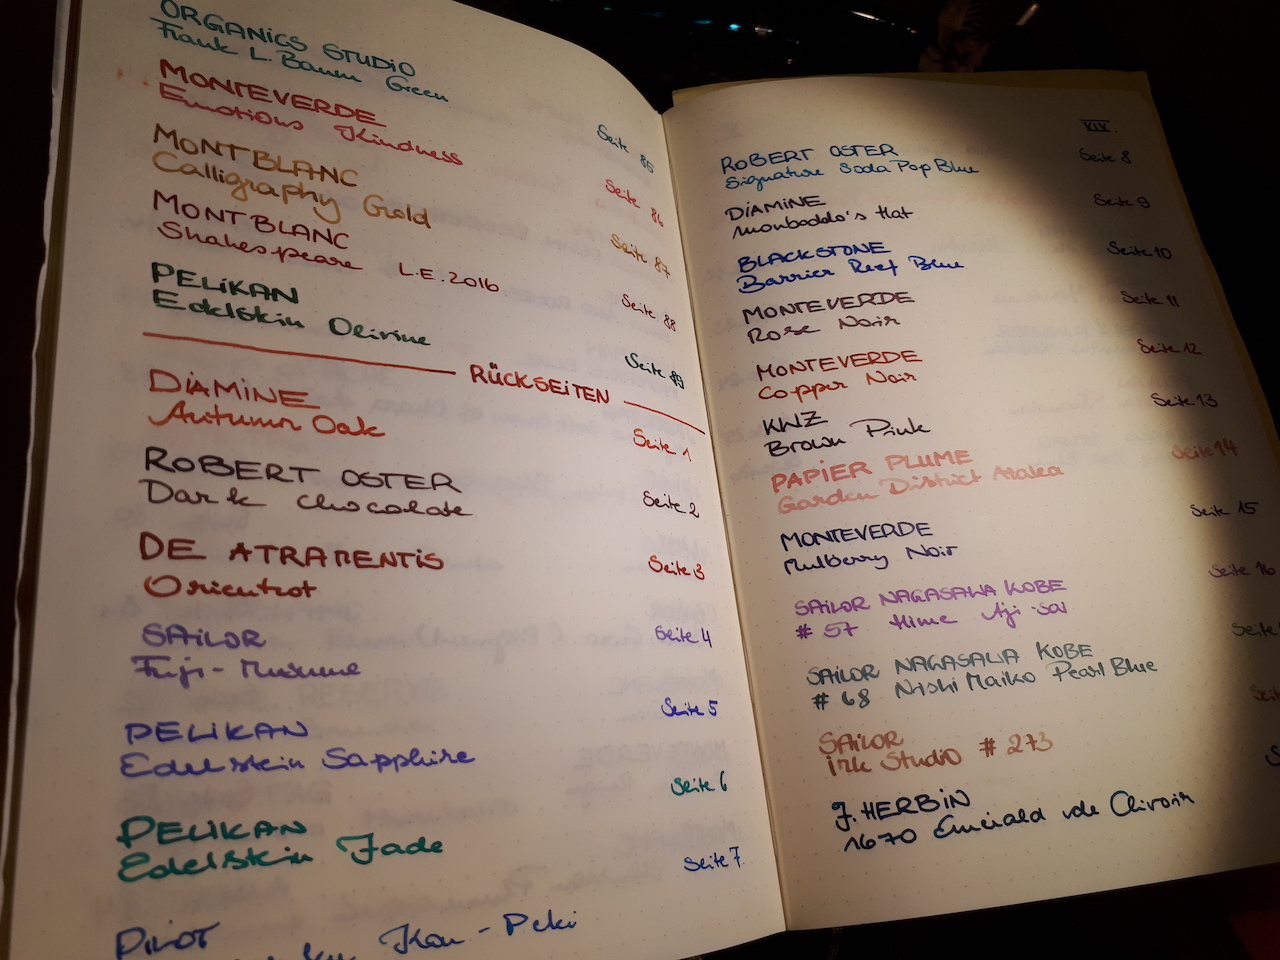 ORGANICS STUDIO
Frank L. Baum Green Seite 85
MONTEVERDE
Emotions Kindness Seite 86
MONTBLANC
Calligraphy Gold Seite 87
MONTBLANC
Shakespeare L.E. 2016 Seite 88
PELIKAN
Edelstein Olivine Seite 89
RÜCKSEITEN
DIAMINE
Autumn Oak Seite 1
ROBERT OSTER
Dark Chocolate Seite 2
DE ATRAMENTIS
Orientrot Seite 3
SAILOR
Fuji-Musume Seite 4
PELIKAN
Edelstein Sapphire Seite 5
PELIKAN
Edelstein Jade Seite 6
PILOT Seite 7
Kon-Peki
XIX.
ROBERT OSTER Seite 8
Signature Soda Pop Blue
DIAMINE Seite 9
Monboddo's Hat
BLACKSTONE Seite 10
Barrier Reef Blue
MONTEVERDE Seite 11
Rose Noir
MONTEVERDE Seite 12
Copper Noir
KWZ Seite 13
Brown Pink
PAPIER PLUME Seite 14
Garden District Azalea
MONTEVERDE Seite 15
Mulberry Noir
SAILOR NAGASAWA KOBE Seite 16
# 57 Hime Aji-sai
SAILOR NAGASAWA KOBE Seite
# 68 Nishi Maiko Pearl Blue
SAILOR Sei
ink Studio # 273
J. HERBIN S
1670 Emerald de Chivoir